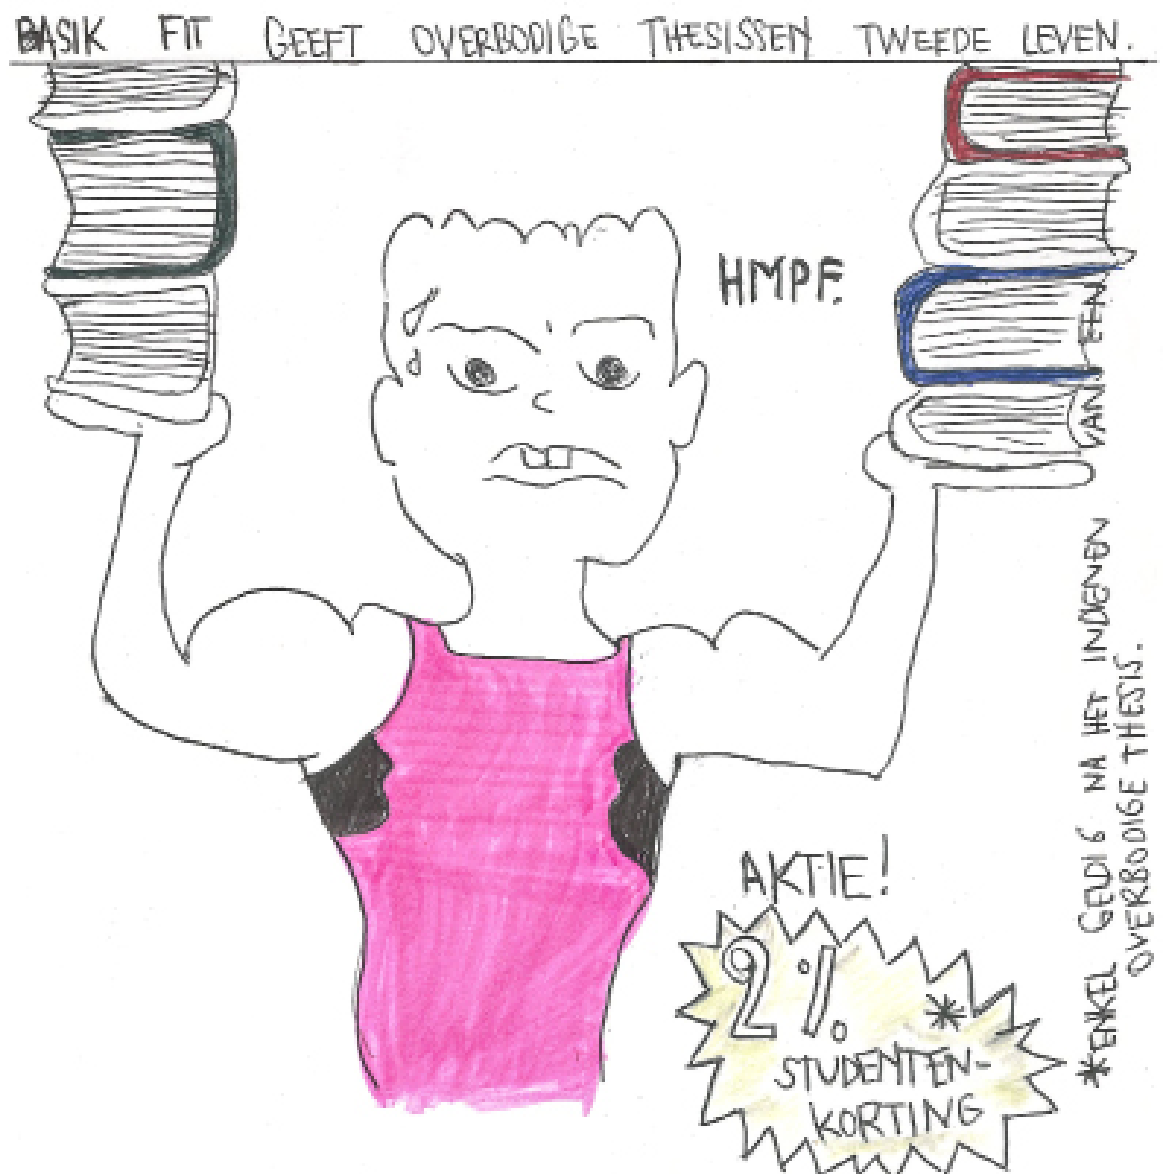 BASIK FIT GEEFT OVERBODIGE THESISSEN TWEEDE LEVEN.
HMPF.
AKTIE!
2%*
STUDENTEN-
KORTING
*ENKEL GELDIG NA HET INDIENEN VAN EEN
OVERBODIGE THESIS.